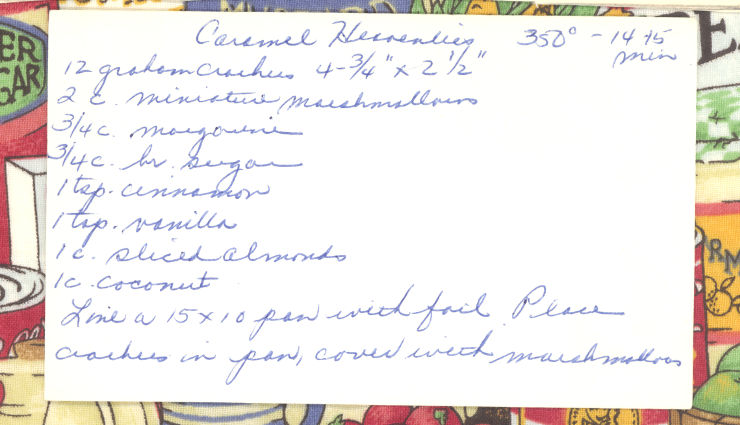 Caramel Heavenlies 350° - 14-15 min
12 graham crackers 4-3/4" x 2 1/2"
2 c. miniature marshmallows
3/4 c. margarine
3/4 c. br. sugar
1 tsp. cinnamon
1 tsp. vanilla
1 c. sliced almonds
1 c. coconut
Line a 15 x 10 pan with foil. Place
crackers in pan, cover with marshmallows